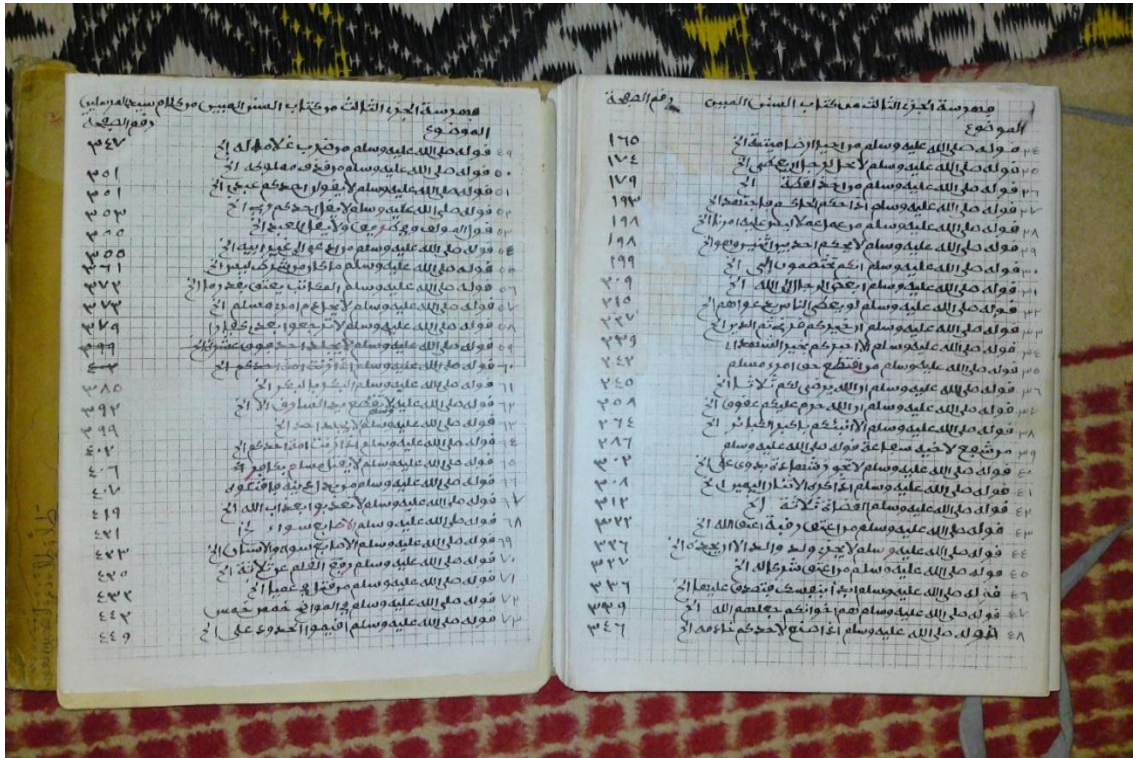 فهرسة الجزء الثالث من كتاب السنن المبين رقم الصفحة
الموضوع
٢٤ قوله صلى الله عليه وسلم من احيا ارضا ميتة الخ ١٦٥
٢٥ قوله صلى الله عليه وسلم لا يحل لرجل ان يعطي الخ ١٧٤
٢٦ قوله صلى الله عليه وسلم من اخذ لقطة الخ ١٧٩
٢٧ قوله صلى الله عليه وسلم اذا حكم الحاكم فاجتهد الخ ١٩٣
٢٨ قوله صلى الله عليه وسلم من عمل عملا ليس عليه امرنا الخ ١٩٨
٢٩ قوله صلى الله عليه وسلم لا يحكم احد بين اثنين وهو الخ ١٩٨
٣٠ قوله صلى الله عليه وسلم انكم تختصمون الي الخ ١٩٩
٣١ قوله صلى الله عليه وسلم ابغض الرجال الى الله الخ ٢٠٩
٣٢ قوله صلى الله عليه وسلم لو يعطى الناس بدعواهم الخ ٢١٥
٣٣ قوله صلى الله عليه وسلم ان خيركم قرني ثم الذين الخ ٢٢٧
٣٤ قوله صلى الله عليه وسلم الا اخبركم بخير الشهداء ٢٣٩
٣٥ قوله صلى الله عليه وسلم من اقتطع حق امرئ مسلم ٢٤٢
٣٦ قوله صلى الله عليه وسلم ان الله يرضى لكم ثلاثا الخ ٢٤٥
٣٧ قوله صلى الله عليه وسلم ان الله حرم عليكم عقوق الخ ٢٥٨
٣٨ قوله صلى الله عليه وسلم الا انبئكم باكبر الكبائر الخ ٢٦٤
٣٩ من شفع لاخيه شفاعة قوله صلى الله عليه وسلم ٢٨٦
٤٠ قوله صلى الله عليه وسلم لا تجوز شهادة بدوي على الخ ٣٠٢
٤١ قوله صلى الله عليه وسلم اذا كره الاثنان اليمين الخ ٣٠٨
٤٢ قوله صلى الله عليه وسلم القضاة ثلاثة الخ ٣١٢
٤٣ قوله صلى الله عليه وسلم من اعتق رقبة اعتق الله الخ ٣٢٢
٤٤ قوله صلى الله عليه وسلم لا يجزي ولد والدا الا ان يجده الخ ٣٢٦
٤٥ قوله صلى الله عليه وسلم من اعتق شركا له الخ ٣٢٧
٤٦ قوله صلى الله عليه وسلم ابدأ بنفسك فتصدق عليها الخ ٣٣٦
٤٧ قوله صلى الله عليه وسلم هم اخوانكم جعلهم الله الخ ٣٣٩
٤٨ قوله صلى الله عليه وسلم اذا صنع لاحدكم خادمه الخ ٣٤٦
فهرسة الجزء الثالث من كتاب السنن المبين من كلام سيد المرسلين
الموضوع رقم الصفحة
٤٩ قوله صلى الله عليه وسلم من ضرب غلاما له الخ ٣٤٧
٥٠ قوله صلى الله عليه وسلم من قذف مملوكه الخ ٣٥١
٥١ قوله صلى الله عليه وسلم لا يقولن احدكم عبدي الخ ٣٥١
٥٢ قوله صلى الله عليه وسلم لا يقل احدكم ربي الخ ٣٥٣
٥٣ قول المؤلف ولا يقل العبد الخ
٥٤ قوله صلى الله عليه وسلم من ادعى الى غير ابيه الخ ٣٥٥
٥٥ قوله صلى الله عليه وسلم ما كان من شرط ليس الخ ٣٦١
٥٦ قوله صلى الله عليه وسلم المكاتب يعتق بقدر ما الخ ٣٧٢
٥٧ قوله صلى الله عليه وسلم لا يحل دم امرئ مسلم الخ ٣٧٣
٥٨ قوله صلى الله عليه وسلم لا ترجعوا بعدي كفارا ٣٧٩
٥٩ قوله صلى الله عليه وسلم لا يجلد احد فوق عشر الخ
٦٠ قوله صلى الله عليه وسلم اذا زنت امة احدكم الخ
٦١ قوله صلى الله عليه وسلم البكر بالبكر الخ ٣٨٥
٦٢ قوله صلى الله عليه وسلم لا تقطع يد السارق الا الخ ٣٩٢
٦٣ قوله صلى الله عليه وسلم لا يجلد احد الخ ٣٩٩
٦٤ قوله صلى الله عليه وسلم اذا زنت امة احدكم الخ ٤٠٢
٦٥ قوله صلى الله عليه وسلم لا يقتل مسلم بكافر الخ ٤٠٦
٦٦ قوله صلى الله عليه وسلم من بدل دينه فاقتلوه ٤٠٧
٦٧ قوله صلى الله عليه وسلم لا تعذبوا بعذاب الله الخ ٤١٩
٦٨ قوله صلى الله عليه وسلم الاصابع سواء الخ ٤٢١
٦٩ قوله صلى الله عليه وسلم الاصابع سواء والاسنان الخ ٤٢٣
٧٠ قوله صلى الله عليه وسلم رفع القلم عن ثلاثة الخ ٤٢٥
٧١ قوله صلى الله عليه وسلم من قتل في عميا الخ ٤٣٢
٧٢ قوله صلى الله عليه وسلم في المواضح خمس خمس ٤٤٢
٧٣ قوله صلى الله عليه وسلم اقيموا الحدود على الخ ٤٤٩